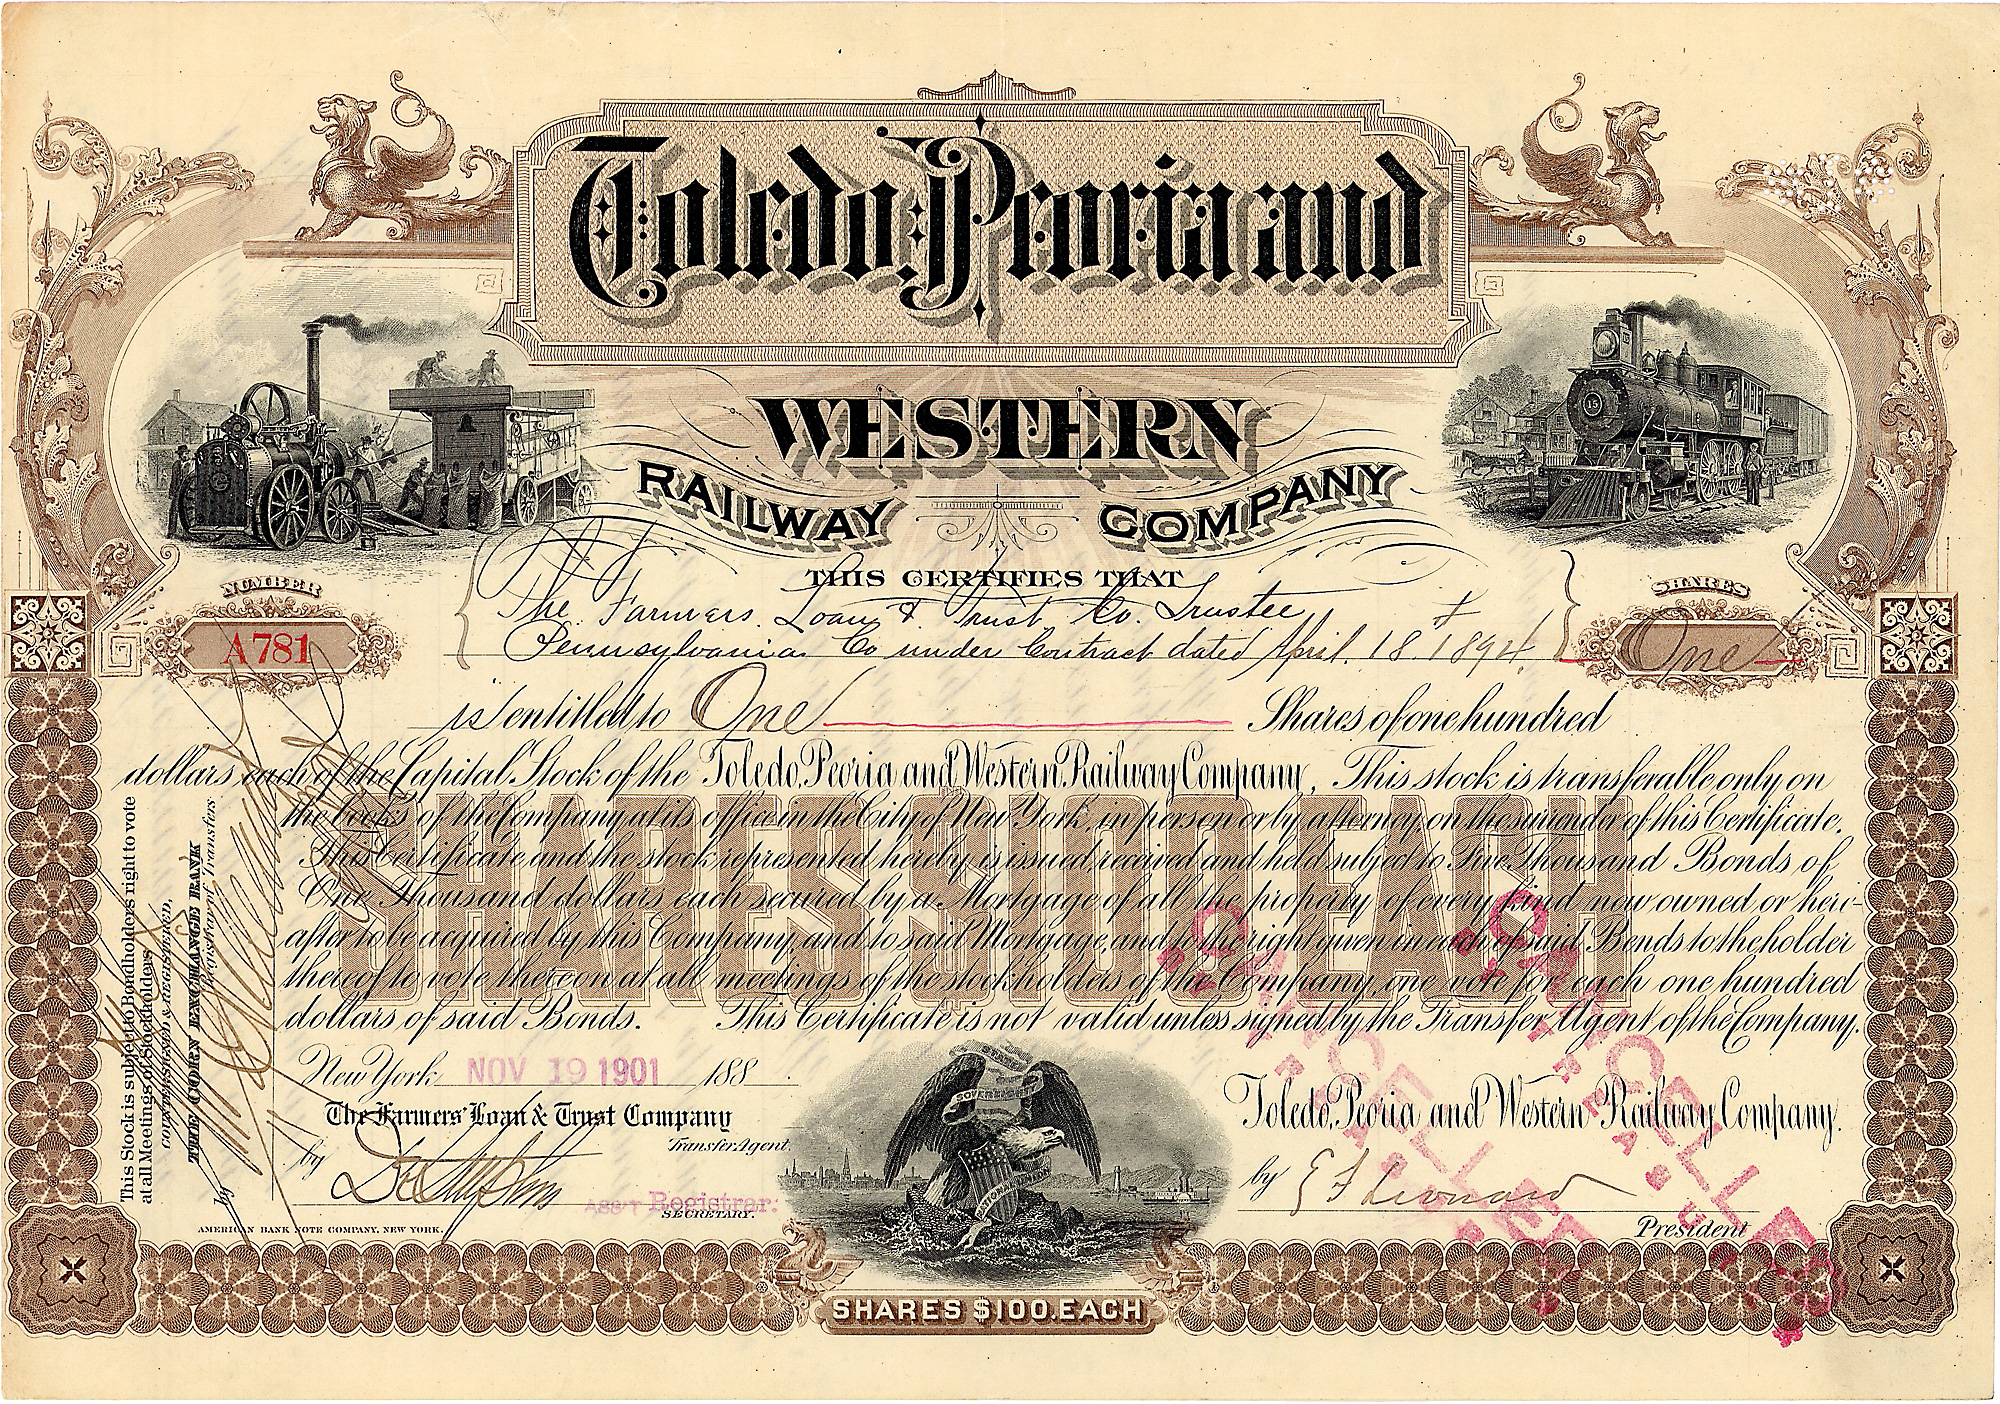 Toledo, Peoria and
WESTERN
RAILWAY COMPANY
THIS CERTIFIES THAT
NUMBER
A781
SHARES
One
The Farmers Loan & Trust Co. Trustee &
Pennsylvania Co under Contract dated April 18 1894
is entitled to One Shares of one hundred
dollars each of the Capital Stock of the Toledo, Peoria and Western Railway Company, This stock is transferable only on
the books of the Company at its office in the City of New York, in person or by attorney on the surrender of this Certificate.
This Certificate and the stock represented hereby is issued, received and held subject to Five Thousand Bonds of
One Thousand dollars each secured by a Mortgage of all the property of every kind now owned or here-
after to be acquired by this Company, and to said Mortgage, and to the right given in each of said Bonds to the holder
thereof to vote thereon at all meetings of the stockholders of the Company, one vote for each one hundred
dollars of said Bonds. This Certificate is not valid unless signed by the Transfer Agent of the Company.
SHARES $100 EACH
New York NOV 19 1901 188
The Farmers' Loan & Trust Company
Transfer Agent.
by
Ass't Registrar:
SECRETARY.
Toledo, Peoria and Western Railway Company.
by E F Leonard
President
This Stock is subject to Bondholders right to vote
at all Meetings of Stockholders
COUNTERSIGNED & REGISTERED,
THE CORN EXCHANGE BANK
Registrar of Transfers
by
AMERICAN BANK NOTE COMPANY, NEW YORK.
STATE
SOVEREIGNTY
NATIONAL
15
CANCELLED
CANCELLED
SHARES $100.EACH